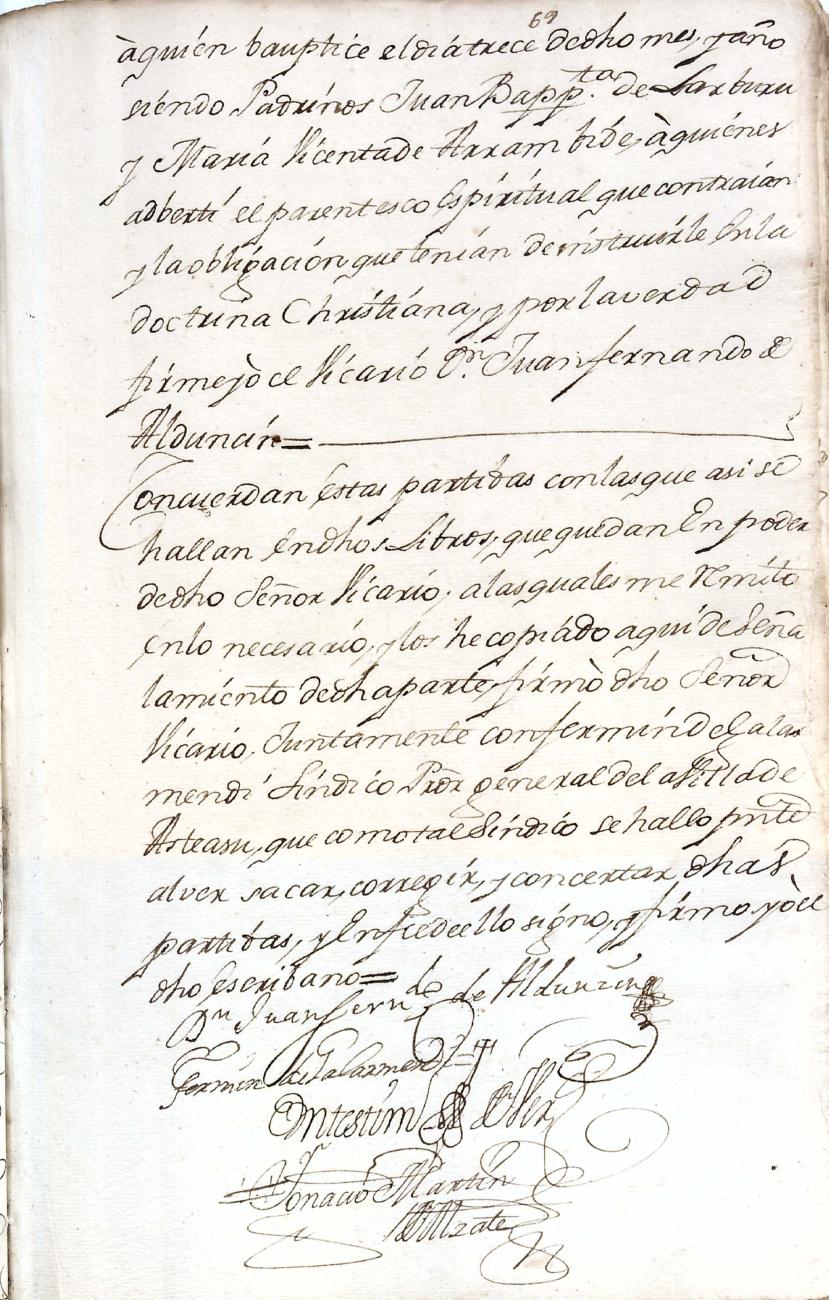 69
àquién bauptice el diá trece dedho mes, y año
siéndo Padrinos Juan Bapp.ta de Larburu
y Mariá Vicenta de Arrambide, à quiénes
adbertí el parentesco Espirítual que contraián
y la obligación que tenían de instruirle En la
doctrina Christiana, y por la verdad
firmè yò el Vicarió Dn. Juan fernando de
Alduncin=
Concuerdan éstas partidas con las que asi se
hallan én dhos Libros, que quedan En poder
de dho Señor Vicarió, a las quales me remito
én lo necesarió, y los he copiádo aquí de Seña
lamiénto de dha parte, firmò dho Señor
Vicario, Juntamente con fermín de Galar
mendi Síndico Pror general de la Villa de
Asteasu, que como tal Síndico se hallo prnte
al ver sacar, corregir, y concertar dhas
partidas, y En fee de ello signo, y firmo yò el
dho Escribano=
Dn Juan Ferndo de Alduncin
Fermin de Galarmendi
En testimo de Ver
Ignacio Martin
de Alzate